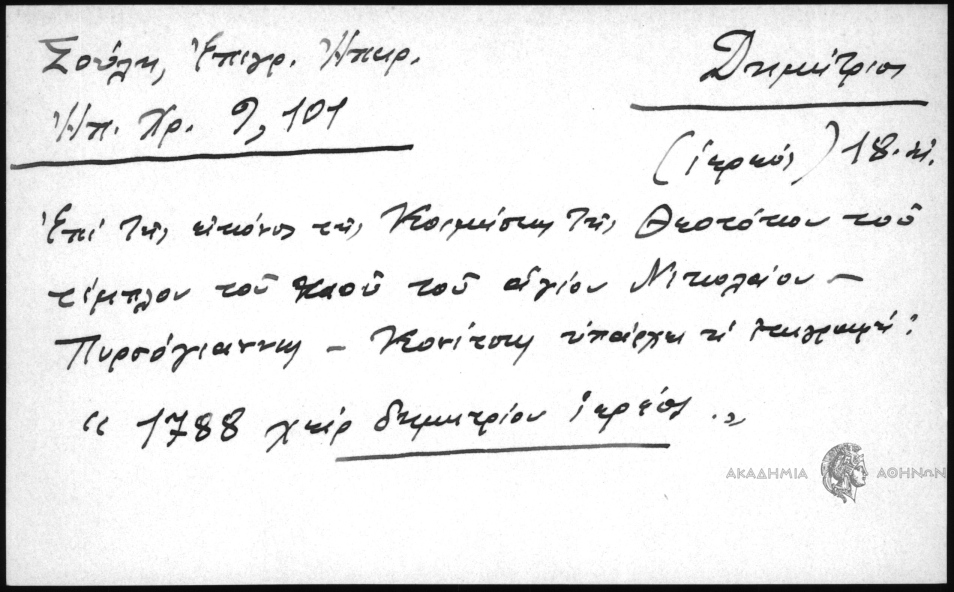 Σούλη, Ἐπιγρ. Ἠπειρ.
Ἠπ. Χρ. 9, 101
Δημήτριος
(ἱερεύς) 18. αἰ.
Ἐπί τῆς εἰκόνος τῆς Κοιμήσεως τῆς Θεοτόκου τοῦ
τέμπλου τοῦ ναοῦ τοῦ ἁγίου Νικολάου –
Πυρσόγιαννης – Κονίτσης ὑπάρχει ἡ ἐπιγραφή:
“ 1788 χείρ δημητρίου ἱερέος. „
ΑΚΑΔΗΜΙΑ ΑΘΗΝΩΝ